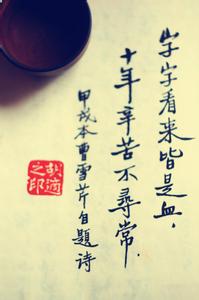 字字看来皆是血，
十年辛苦不尋常.
甲戌本曹雪芹自題詩
胡適之印